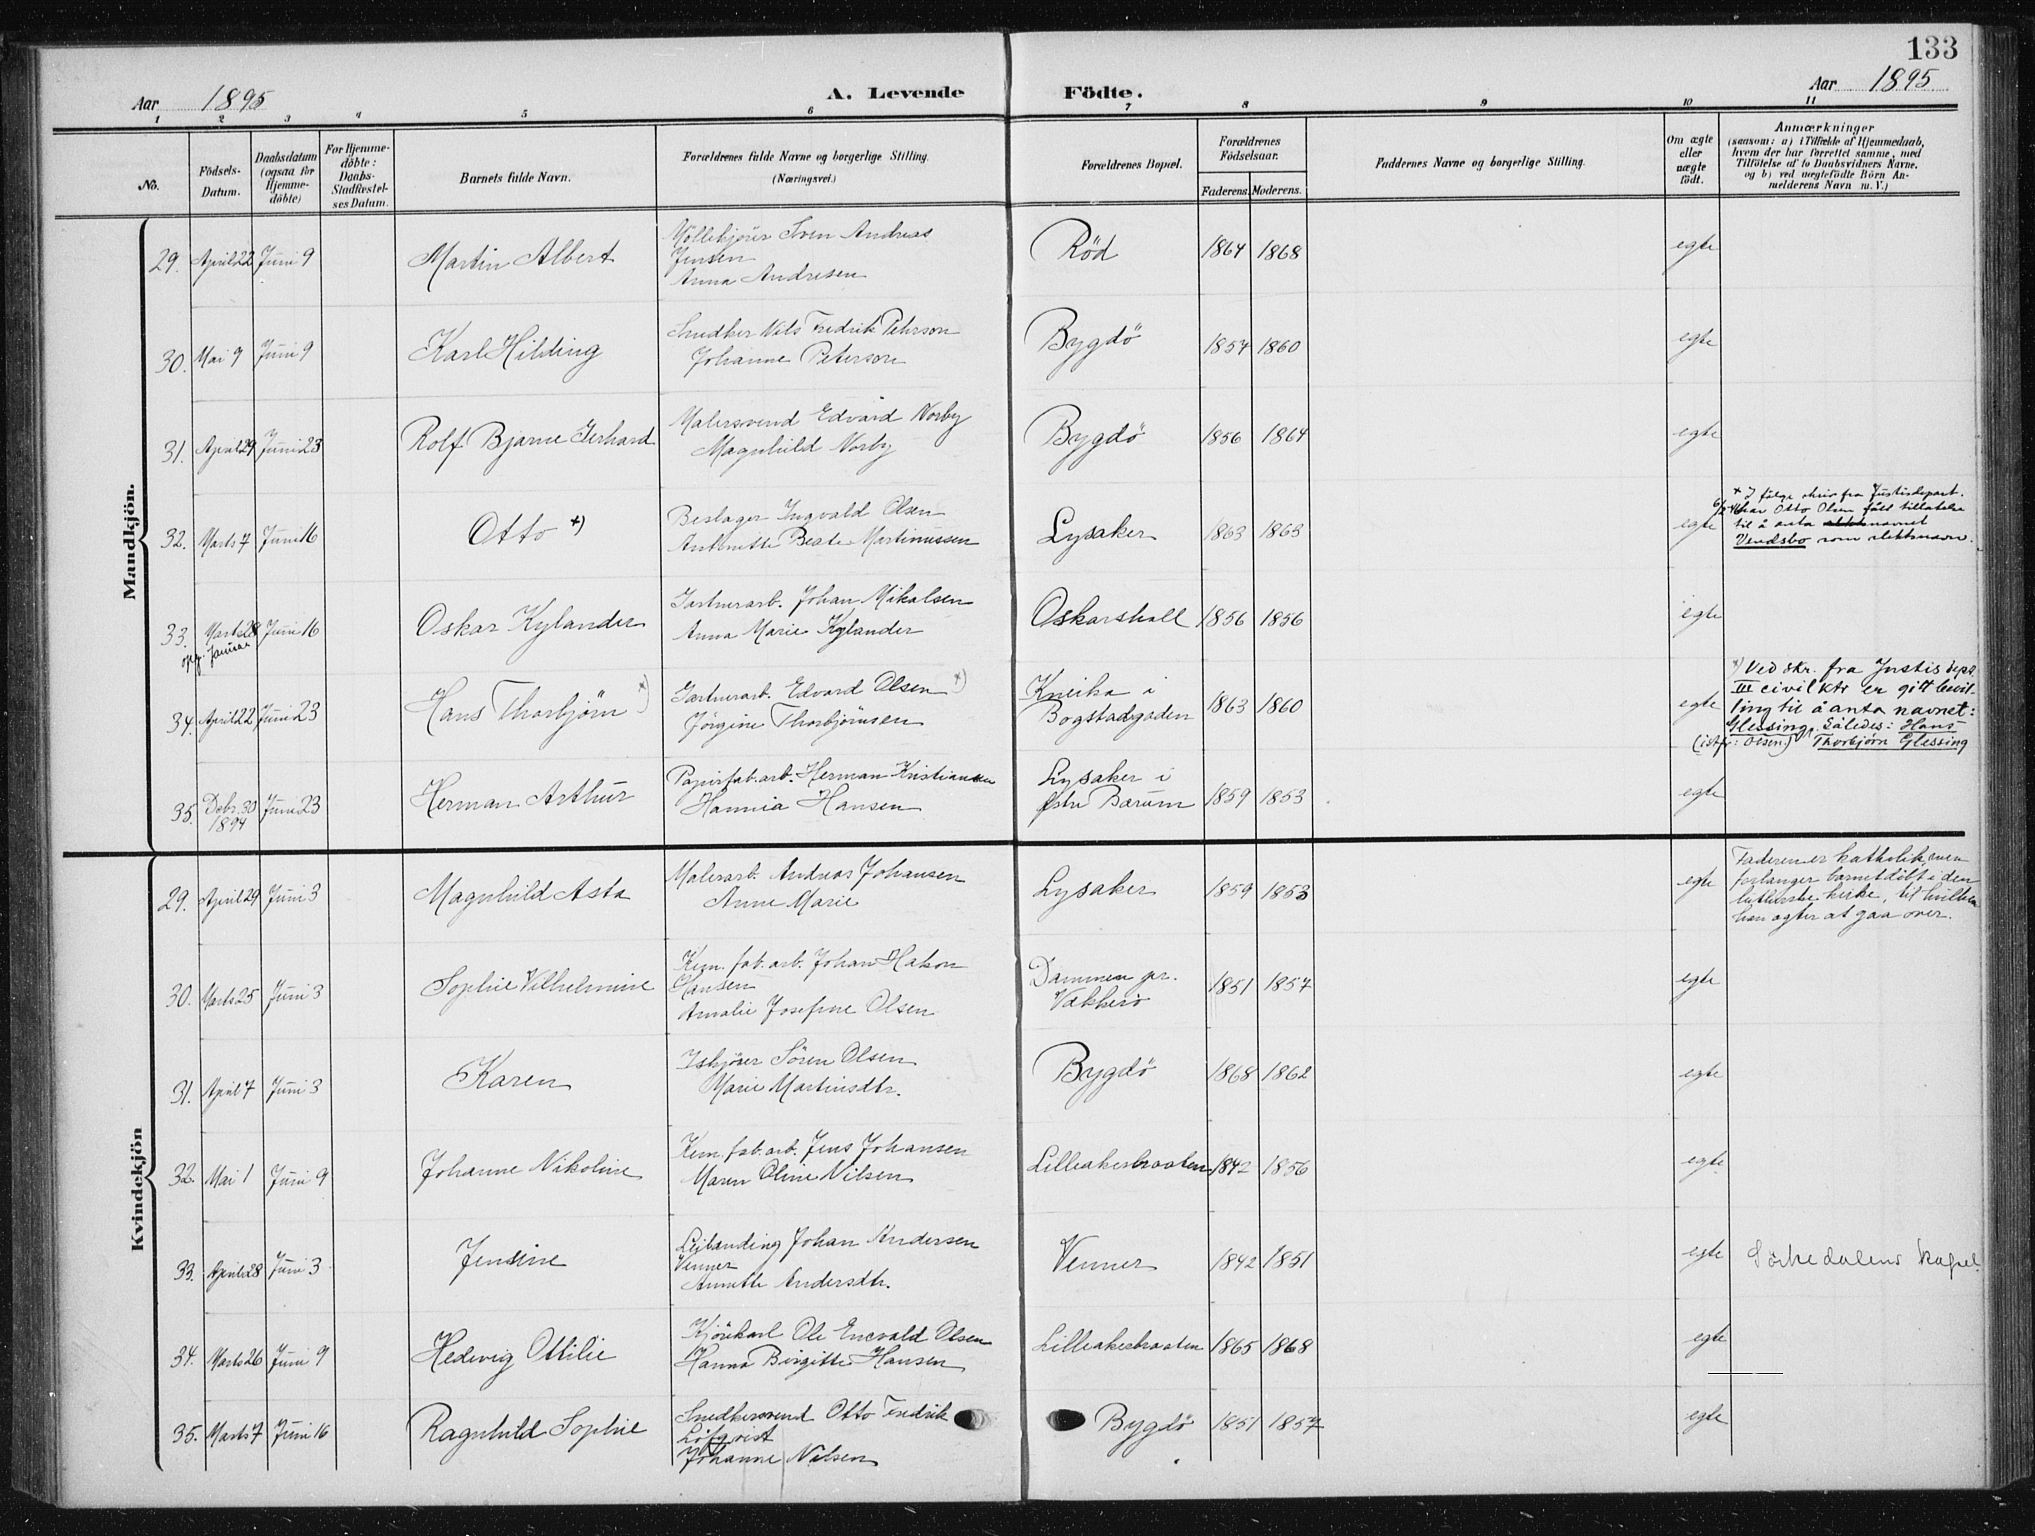 133
Aar 1895 A. Levende Födte. Aar 1895
1 2 3 4 5 6 7 8 9 10 11
No.
Födsels-
Datum.
Daabsdatum
(ogsaa for
Hjemme-
döbte)
For Hjemme-
döbte:
Daabs-
Stadfæstel-
ses Datum.
Barnets fulde Navn.
Forældrenes fulde Navne og borgerlige Stilling.
(Næringsvei.)
Forældrenes Bopæl.
Forældrenes
Födselsaar.
Faderens. Moderens.
Faddernes Navne og borgerlige Stilling.
Om ægte
eller
uægte
födt.
Anmærkninger
(saasom: a) i Tilfælde af Hjemmedaab,
hvem der har forrettet samme, med
Tilföielse af to Daabsvidners Navne,
og b) ved uægtefödte Börn An-
melderens Navn m. V.)
Mandkjön.
29. April 22 Juni 9 Martin Albert
Möllekjörer Sven Andreas
Jensen
Anna Andresen
Röd 1864 1868 egte
30. Mai 9 Juni 9 Karl Hilding
Snedker Nils Fredrik Peterson
Johanne Peterson
Bygdö 1854 1860 egte
31. April 29 Juni 23 Rolf Bjarne Gerhard
Malersvend Edvard Norby
Magnhild Norby
Bygdö 1856 1864 egte
32. Marts 7 Juni 16 Otto x)
Beslager Ingvald Olsen
Antonette Beate Martinussen
Lysaker 1863 1863 egte
x I følge skriv fra Justisdepart.
6/2-46 har Otto Olsen fått tillatelse
til å anta navnet
Vendsbo som slektsnavn.
33. Marts 28 Juni 16 Oskar Kylander
opg. Januar
Gartnerarb. Johan Mikalsen
Anna Marie Kylander
Oskarshall 1856 1856 egte
34. April 22 Juni 23 Hans Thorbjörn x)
Gartnerarb. Edvard Olsen x)
Jörgine Thorbjörnsen
Kneika i
Bogstadgaden
1863 1860 egte
x) Ved skr. fra Justisdepa.
III civilktr er gitt bevil-
ling til å anta navnet:
Glessing. Således: Hans
(istf: Olsen) Thorbjørn Glessing
35. Debr. 30 Juni 23 Herman Arthur
1894
Papirfab.arb. Herman Kristiansen
Hannia Hansen
Lysaker i
Østre Bærum
1859 1853 egte
Kvindekjön
29. April 29 Juni 3 Magnhild Asta
Malerarb. Andreas Johansen
Anne Marie
Lysaker 1859 1853 egte
Faderen er katholik, men
forlanger barnet döbt i den
lutherske kirke, til hvilken
han agter at gaa over.
30. Marts 25 Juni 3 Sophie Vilhelmine
Kem. fab. arb. Johan Hakon
Hansen
Amalie Josefine Olsen
Dammen pr.
Vækkerö
1851 1857 egte
31. April 7 Juni 3 Karen
Iskjörer Sören Olsen
Marie Martinsdtr.
Bygdö 1868 1862 egte
32. Mai 1 Juni 9 Johanne Nikoline
Kem. fab. arb. Jens Johansen
Maren Oline Nilsen
Lilleakerbraaten 1842 1856 egte
33. April 28 Juni 3 Jensine
Leilænding Johan Andersen
Venner
Annette Andersdtr.
Venner 1842 1851 egte Sörkedalens kapel.
34. Marts 26 Juni 9 Hedevig Ottilie
Kjörekarl Ole Enevald Olsen
Hanna Birgitte Hansen
Lilleakerbraaten 1865 1868 egte
35. Marts 7 Juni 16 Ragnhild Sophie
Snedkersvend Otto Fredrik
Löfqvist
Johanne Nilsen
Bygdö 1851 1857 egte